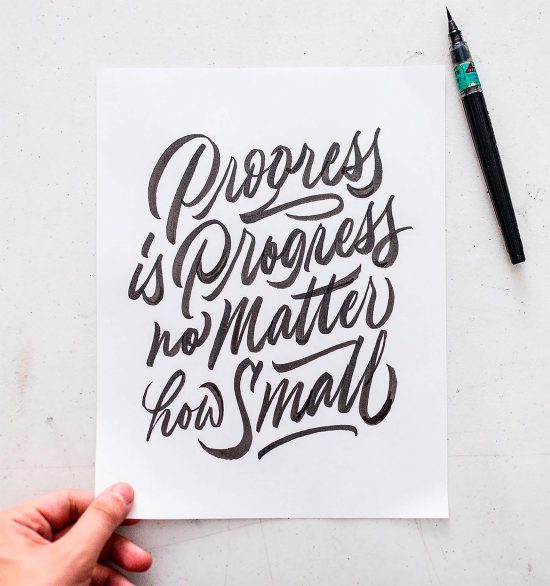 Progress
is Progress
no Matter
how Small